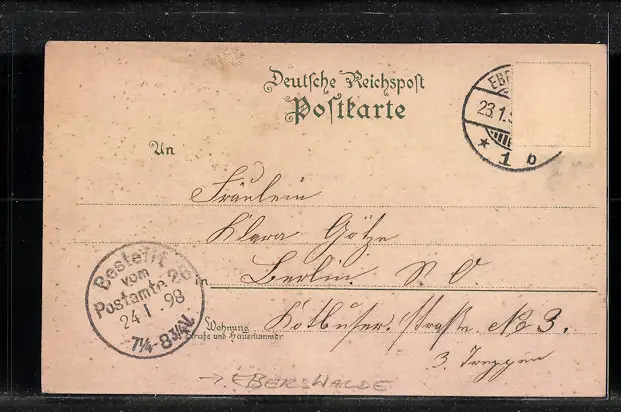 Deutsche Reichspost
Postkarte
EBE
23.1.
* 1 b
An
Fräulein
Klara Götze
in Berlin S. O.
Wohnung
Straße und Hausnummer
Kotbuser straße No 3.
3. Treppen
Bestellt
vom
Postamte
24.1.98
7¼-8¾V.
→ EBERSWALDE